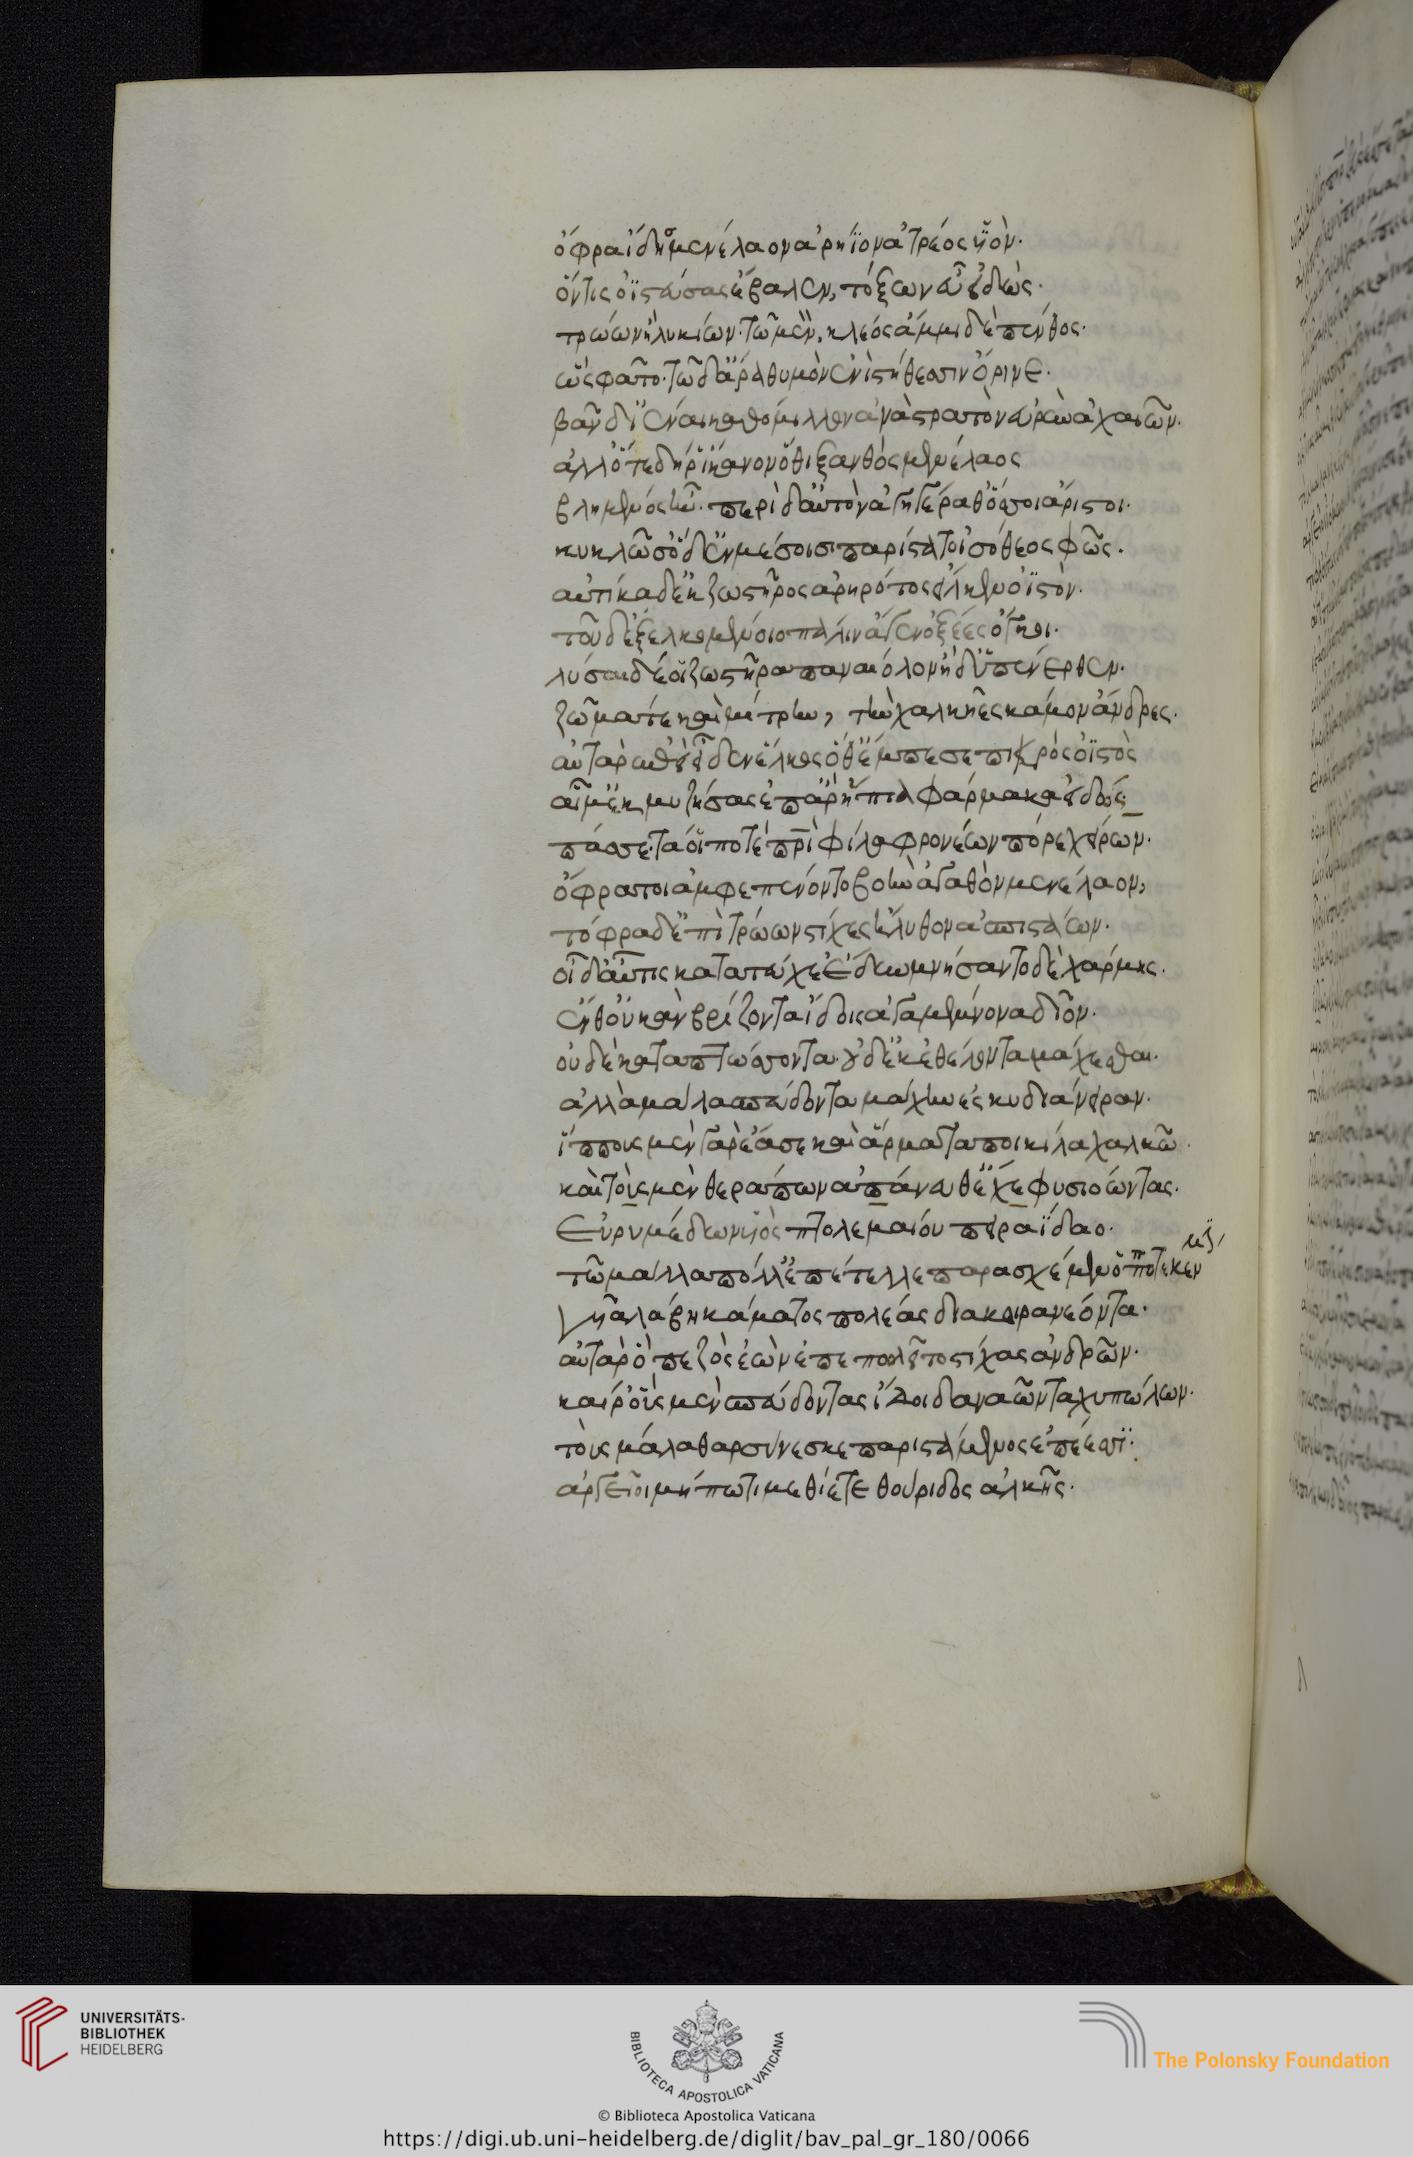 ὄφρα ἴδη μενέλαον ἀρήϊον ἀτρέος υἱὸν·
ὅντις ὀϊστεύσας ἔβαλεν, τόξων εὖ εἰδὼς·
τρώων ἢ λυκίων· τῶ μὲν, κλεός ἄμμι δὲ πένθος·
ὣς φάτο· τῶ δ' ἄρα θυμὸν ἐνὶ στήθεσσιν ὄρινε·
βὰν δ' ἰέναι καθ' ὅμιλλον ἀνὰ στρατὸν εὐρὺν ἀχαιῶν·
ἀλλ' ὅτε δή ῥ' ἵκανον ὅθι ξανθὸς μενέλαος
βλημενός ἦν· περὶ δ' αὐτὸν ἀγηγέραθ' ὅσσοι ἄριστοι·
κυκλῶσ' ὃ δ' ἐν μέσοισι παρίστατο ἰσόθεος φῶς·
αὐτίκα δ' ἐκ ζωστῆρος ἀρηρότος εἷλκεν ὀϊστὸν·
τοῦ δ' ἐξελκομένοιο πάλιν ἄγεν ὀξέες ὄγκοι·
λύσαι δέ οἱ ζωστῆρα παναιόλον ἠδ' ὑπένερθεν·
ζῶμα τε καὶ μίτρην, τὴν χαλκῆες κάμον ἄνδρες·
αὐτὰρ ἐπεὶ εἶδεν ἕλκος ὅθ' ἔμπεσε πικρὸς ὀϊστὸς
αἷμ' ἐκμυζήσας ἐπ' ἄρ' ἤπια φάρμακα εἰδώς·
πάσσε· τά οἵ ποτέ πρὶ φίλα φρονέων πόρε χείρων·
ὄφρα τοι ἀμφεπένοντο βοὴν ἀγαθὸν μενέλαον,
τόφρα δ' ἐπὶ τρώων στίχες ἤλυθον ἀσπιστάων·
οἳ δ' αὖτις κατα τεύχε' ἔδυν μνήσαντο δὲ χάρμης·
ἔνθ' οὐκ ἂν βρίζοντα ἴδοις ἀγαμέμνονα δῖον·
οὐδὲ καταπτώσοντα· οὐδ' ἐκ ἐθέλοντα μάχεσθαι·
ἀλλὰ μάλα σπεύδοντα μάχην ἐς κυδιάνειραν·
ἵππους μὲν γὰρ ἔασε καὶ ἅρματα ποικίλα χαλκῶ·
καὶ τοὺς μὲν θεράπων ἀπάνευθ' ἔχε φυσιοώντας·
Εὐρυμέδων υἱὸς πτολεμαίου πειραΐδαο·
τῶ μάλλα πόλλ' ἐπέτελλε παρασχέμεν ὅπποτε κεν μιν
γῦα λάβη κάματος πολέας διακοιρανεόντα·
αὐτὰρ ὃ πεζὸς ἐὼν ἐπεπωλεῖτο στίχας ἀνδρῶν·
καί ῥ' οὓς μὲν σπεύδοντας ἴδοι δαναῶν ταχυπώλων·
τοὺς μάλα θαρσύνεσκε παριστάμενος ἐπέεσσι·
ἀργεῖοι μή πω τι μεθίετε θούριδος ἀλκῆς·
UNIVERSITÄTS-
BIBLIOTHEK
HEIDELBERG
BIBLIOTECA APOSTOLICA VATICANA
The Polonsky Foundation
© Biblioteca Apostolica Vaticana
https://digi.ub.uni-heidelberg.de/diglit/bav_pal_gr_180/0066